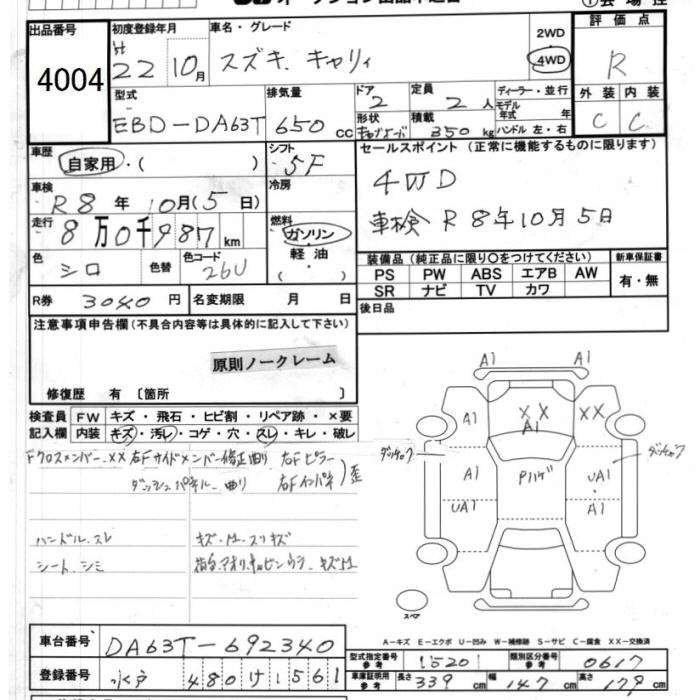 出品番号
4004
初度登録年月
22年10月
車名・グレード
スズキ.キャリィ
2WD
4WD
評価点
R
型式
EBD-DA63T
排気量
650cc
ドア
2
定員
2人
形状
積載
350kg
ディーラー・並行
モデル
年式 年
ハンドル 左・右
外装
C
内装
C
車歴
自家用・( )
シフト
5F
車検
R8年10月(5日)
冷房
走行
8万0千987km
燃料
ガソリン
軽油
( )
色
シロ
色替
色コード
26U
R券
3040円
名変期限 月 日
セールスポイント(正常に機能するものに限ります)
4WD
車検 R8年10月5日
装備品(純正品に限り○をつけてください)
新車保証書
PS PW ABS エアB AW
有・無
SR ナビ TV カワ
後日品
注意事項申告欄(不具合内容等は具体的に記入して下さい)
原則ノークレーム
修復歴 有〔箇所 〕
検査員 FW キズ・飛石・ヒビ割・リペア跡・×要
記入欄 内装 キズ・汚レ・コゲ・穴・スレ・キレ・破レ
Fクロスメンバー.XX 右Fサイドメンバー修正曲り 右Fピラー
ダッシュパネル 曲り 右Fインパネ)歪
ハンドル.スレ
シート.シミ
A1 A1
A1 XX A1 XX
A1 Pハゲ UA1
UA1 A1
スペア
A-キズ E-エクボ U-凹み W-補修跡 S-サビ C-腐食 XX-交換済
車台番号
DA63T-692340
登録番号
水戸 480 け 1561
型式指定番号
参考
15201
類別区分番号
参考
0617
車庫証明用
参考
長さ 339cm
幅 147cm
高さ 179cm